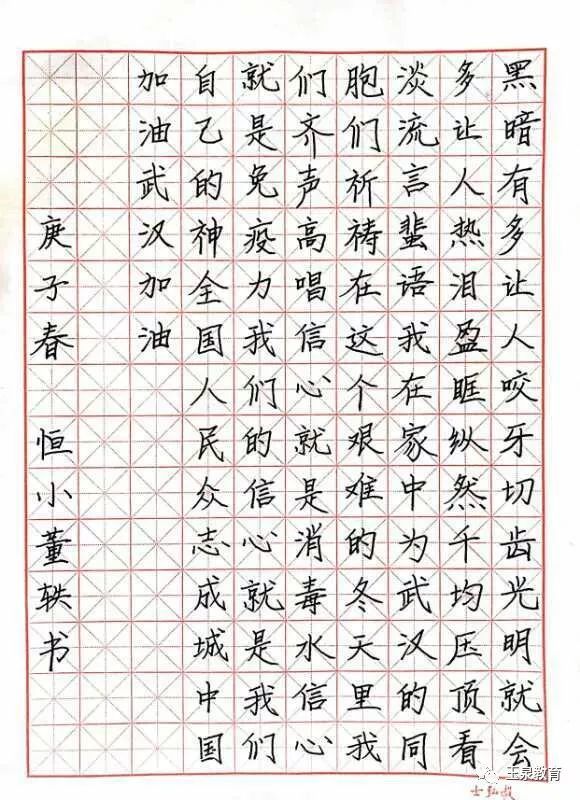 黑暗有多让人咬牙切齿光明就会
多让人热泪盈眶纵然千均压顶看
淡流言蜚语我在家中为武汉的同
胞们祈祷在这个艰难的冬天里我
们齐声高唱信心就是消毒水信心
就是免疫力我们的信心就是我们
自己的神全国人民众志成城中国
加油武汉加油
庚子春 恒小董轶书
玉泉教育